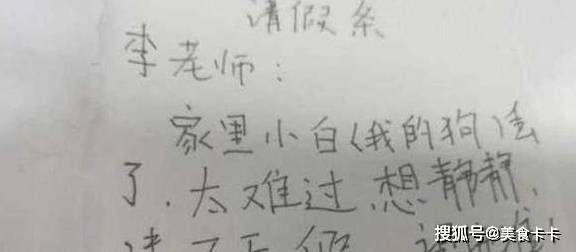 请假条
李老师:
家里小白(我的狗)丢
了,太难过,想静静,
搜狐号@美食卡卡